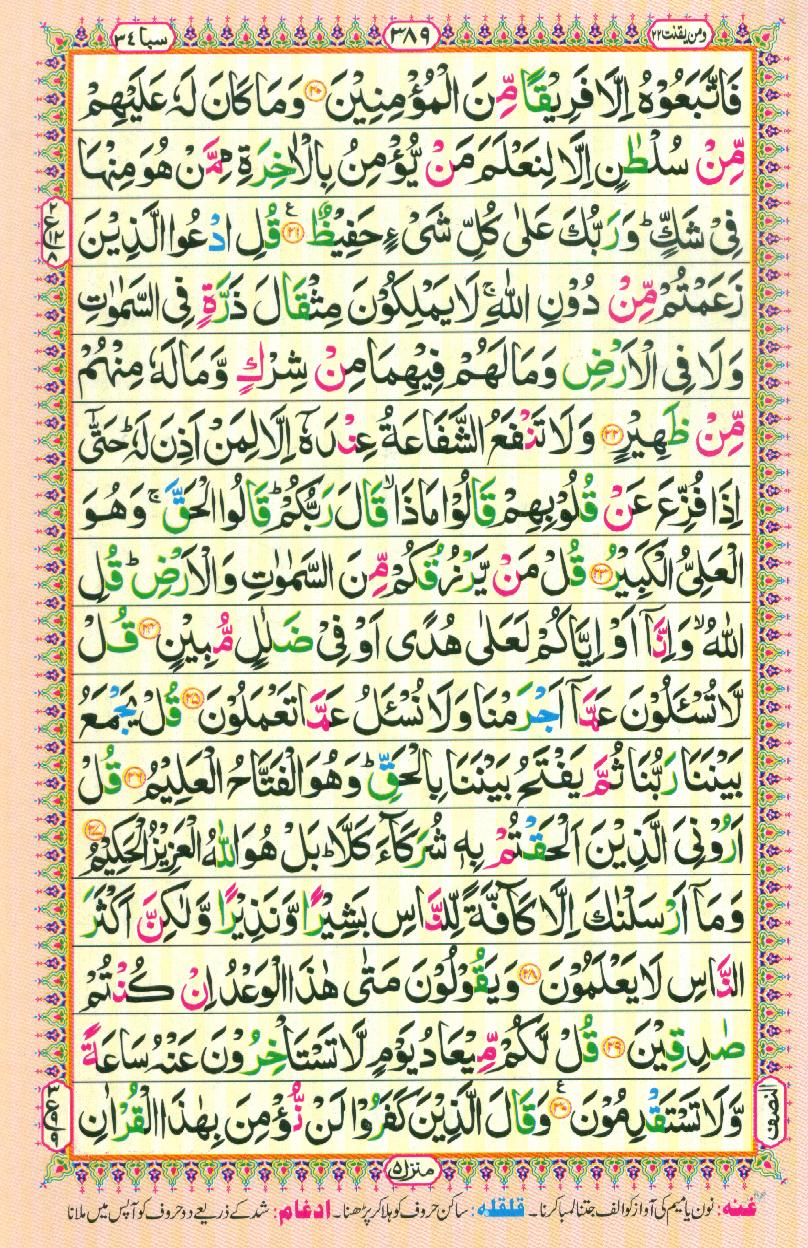 ومن یقنت ۲۲
۳۸۹
سبا ۳٤
فَاتَّبَعُوْهُ اِلَّا فَرِیْقًا مِّنَ الْمُؤْمِنِیْنَ ﴿۲۰﴾ وَمَا كَانَ لَهٗ عَلَیْهِمْ
مِّنْ سُلْطٰنٍ اِلَّا لِنَعْلَمَ مَنْ یُّؤْمِنُ بِالْاٰخِرَةِ مِمَّنْ هُوَ مِنْهَا
فِیْ شَكٍّ ؕ وَرَبُّكَ عَلٰی كُلِّ شَیْءٍ حَفِیْظٌ ﴿۲۱﴾ ع قُلِ ادْعُوا الَّذِیْنَ
زَعَمْتُمْ مِّنْ دُوْنِ اللّٰهِ ۚ لَا یَمْلِكُوْنَ مِثْقَالَ ذَرَّةٍ فِی السَّمٰوٰتِ
وَلَا فِی الْاَرْضِ وَمَا لَهُمْ فِیْهِمَا مِنْ شِرْكٍ وَّمَا لَهٗ مِنْهُمْ
مِّنْ ظَهِیْرٍ ﴿۲۲﴾ وَلَا تَنْفَعُ الشَّفَاعَةُ عِنْدَهٗۤ اِلَّا لِمَنْ اَذِنَ لَهٗ ؕ حَتّٰۤی
اِذَا فُزِّعَ عَنْ قُلُوْبِهِمْ قَالُوْا مَاذَا ۙ قَالَ رَبُّكُمْ ؕ قَالُوا الْحَقَّ ۚ وَهُوَ
الْعَلِیُّ الْكَبِیْرُ ﴿۲۳﴾ قُلْ مَنْ یَّرْزُقُكُمْ مِّنَ السَّمٰوٰتِ وَالْاَرْضِ ؕ قُلِ
اللّٰهُ ۙ وَاِنَّاۤ اَوْ اِیَّاكُمْ لَعَلٰی هُدًی اَوْ فِیْ ضَلٰلٍ مُّبِیْنٍ ﴿۲۴﴾ قُلْ
لَّا تُسْـَٔلُوْنَ عَمَّاۤ اَجْرَمْنَا وَلَا نُسْـَٔلُ عَمَّا تَعْمَلُوْنَ ﴿۲۵﴾ قُلْ یَجْمَعُ
بَیْنَنَا رَبُّنَا ثُمَّ یَفْتَحُ بَیْنَنَا بِالْحَقِّ ؕ وَهُوَ الْفَتَّاحُ الْعَلِیْمُ ﴿۲۶﴾ قُلْ
اَرُوْنِیَ الَّذِیْنَ اَلْحَقْتُمْ بِهٖ شُرَكَآءَ كَلَّا ؕ بَلْ هُوَ اللّٰهُ الْعَزِیْزُ الْحَكِیْمُ ﴿۲۷﴾
وَمَاۤ اَرْسَلْنٰكَ اِلَّا كَآفَّةً لِّلنَّاسِ بَشِیْرًا وَّنَذِیْرًا وَّلٰكِنَّ اَكْثَرَ
النَّاسِ لَا یَعْلَمُوْنَ ﴿۲۸﴾ وَیَقُوْلُوْنَ مَتٰی هٰذَا الْوَعْدُ اِنْ كُنْتُمْ
صٰدِقِیْنَ ﴿۲۹﴾ قُلْ لَّكُمْ مِّیْعَادُ یَوْمٍ لَّا تَسْتَاْخِرُوْنَ عَنْهُ سَاعَةً
وَّلَا تَسْتَقْدِمُوْنَ ﴿۳۰﴾ ع وَقَالَ الَّذِیْنَ كَفَرُوْا لَنْ نُّؤْمِنَ بِهٰذَا الْقُرْاٰنِ
۲ ع ۱۲ ۸
النصف
منزل ۵
غنه: نون یا میم کی آواز کو الف جتنا لمبا کرنا۔ قلقله: ساکن حروف کو ہلا کر پڑھنا۔ ادغام: شد کے ذریعے دو حروف کو آپس میں ملانا